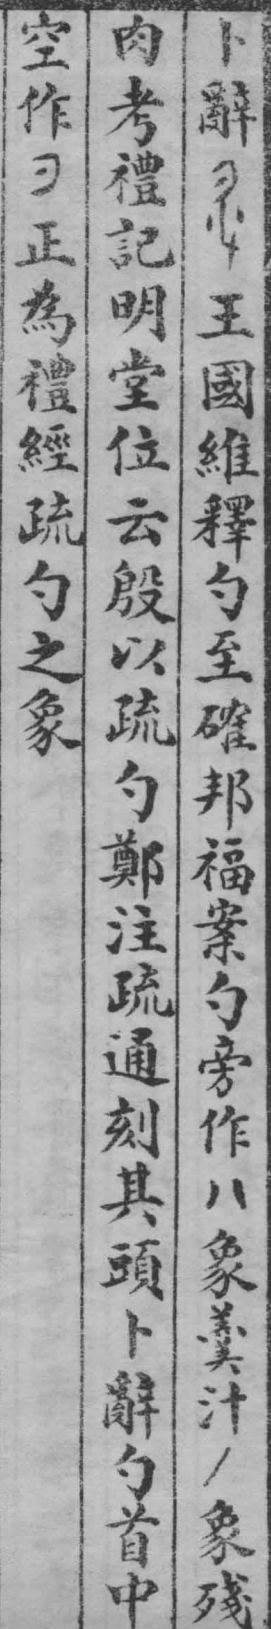 卜辭王國維釋勺至確邦福案勺旁作八象羹汁丿象殘
肉考禮記明堂位云殷以疏勺鄭注疏通刻其頭卜辭勺首中
空作正為禮經疏勺之象